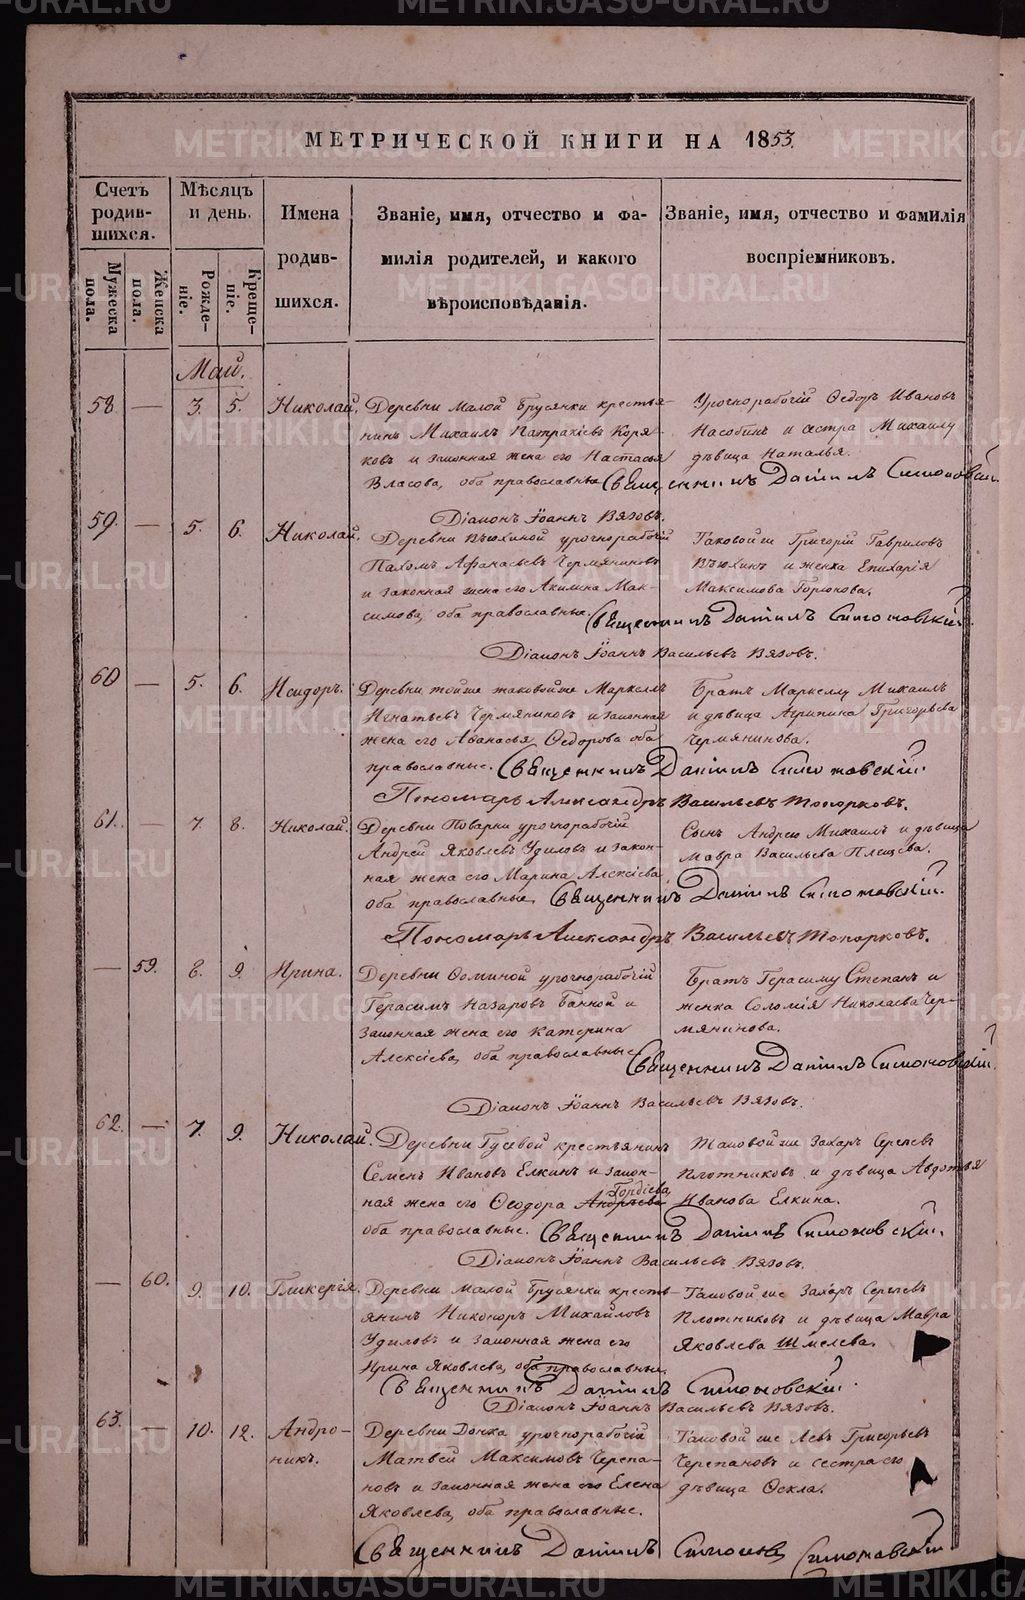 МЕТРИЧЕСКОЙ КНИГИ НА 1853.
Счетъ родив-шихся.
Мужеска пола.
Женска пола.
Мѣсяцъ и день.
Рожде-ніе.
Креще-ніе.
Имена родив-шихся.
Званіе, имя, отчество и фа-
милія родителей, и какого
вѣроисповѣданія.
Званіе, имя, отчество и фамилія
воспріемниковъ.
Май.
58 — 3. 5. Николай. Деревни Малой Брусянки крестья-
нинъ Михаилъ Патракіевъ Коря-
ковъ и законная жена его Настасья
Власова, оба православные
Урочнорабочій Ѳедоръ Ивановъ
Насобинъ и сестра Михаилу
дѣвица Наталья.
Священникъ Даніилъ Симоновскій.
Діаконъ Іоаннъ Вязовъ.
59. — 5. 6. Николай. Деревни Вьюхиной урочнорабочій
Пахомъ Афанасьевъ Чермяниновъ
и законная жена его Акилина Мак-
симова, оба православные.
Таковой же Григорій Гавриловъ
Вьюхинъ и женка Епихарія
Максимова Горюнова.
Священникъ Даніилъ Симоновскій.
Діаконъ Іоаннъ Васильевъ Вязовъ.
60 — 5. 6. Исидоръ. Деревни тойже таковойже Маркелъ
Игнатьевъ Чермяниновъ и законная
жена его Афанасья Ѳедорова оба
православные.
Братъ Маркеллу Михаилъ
и дѣвица Агрипина Григорьева
Чермянинова.
Священникъ Даніилъ Симоновскій.
Пономарь Александръ Васильевъ Топорковъ.
61. — 7. 8. Николай. Деревни Поварни урочнорабочій
Андрей Яковлевъ Удиловъ и закон-
ная жена его Марина Алексіева,
оба православные,
Сынъ Андрею Михаилъ и дѣвица
Мавра Васильева Плещева.
Священникъ Даніилъ Симоновскій.
Пономарь Александръ Васильевъ Топорковъ.
— 59. 8. 9. Ирина. Деревни Ѳоминой урочнорабочій
Герасимъ Назаровъ Банной и
законная жена его Катерина
Алексіева, оба православные
Братъ Герасиму Степанъ и
женка Соломія Николаева Чер-
мянинова.
Священникъ Даніилъ Симоновскій.
Діаконъ Іоаннъ Васильевъ Вязовъ.
62. — 7. 9. Николай. Деревни Гусевой крестьянинъ
Семенъ Ивановъ Елкинъ и закон-
Гордіева
ная жена его Ѳеодора Андреева
оба православные.
Таковой же Захаръ Сергеевъ
Плотниковъ и дѣвица Авдотья
Иванова Елкина.
Священникъ Даніилъ Симоновскій.
Діаконъ Іоаннъ Васильевъ Вязовъ.
— 60. 9. 10. Гликерія. Деревни Малой Брусянки кресть-
янинъ Никоноръ Михайловъ
Удиловъ и законная жена его
Ирина Яковлева, оба православные.
Таковой же Захаръ Сергеевъ
Плотниковъ и дѣвица Мавра
Яковлева Шмелева.
Священникъ Даніилъ Симоновскій.
Діаконъ Іоаннъ Васильевъ Вязовъ.
63. — 10. 12. Андро-
никъ.
Деревни Донка урочнорабочій
Матвей Максимовъ Черепа-
новъ и законная жена его Елена
Яковлева, оба православные.
Таковой же Левъ Григорьевъ
Черепановъ и сестра его
дѣвица Ѳекла.
Священникъ Даніилъ Симонов Симоновскій
METRIKI.GASO-URAL.RU